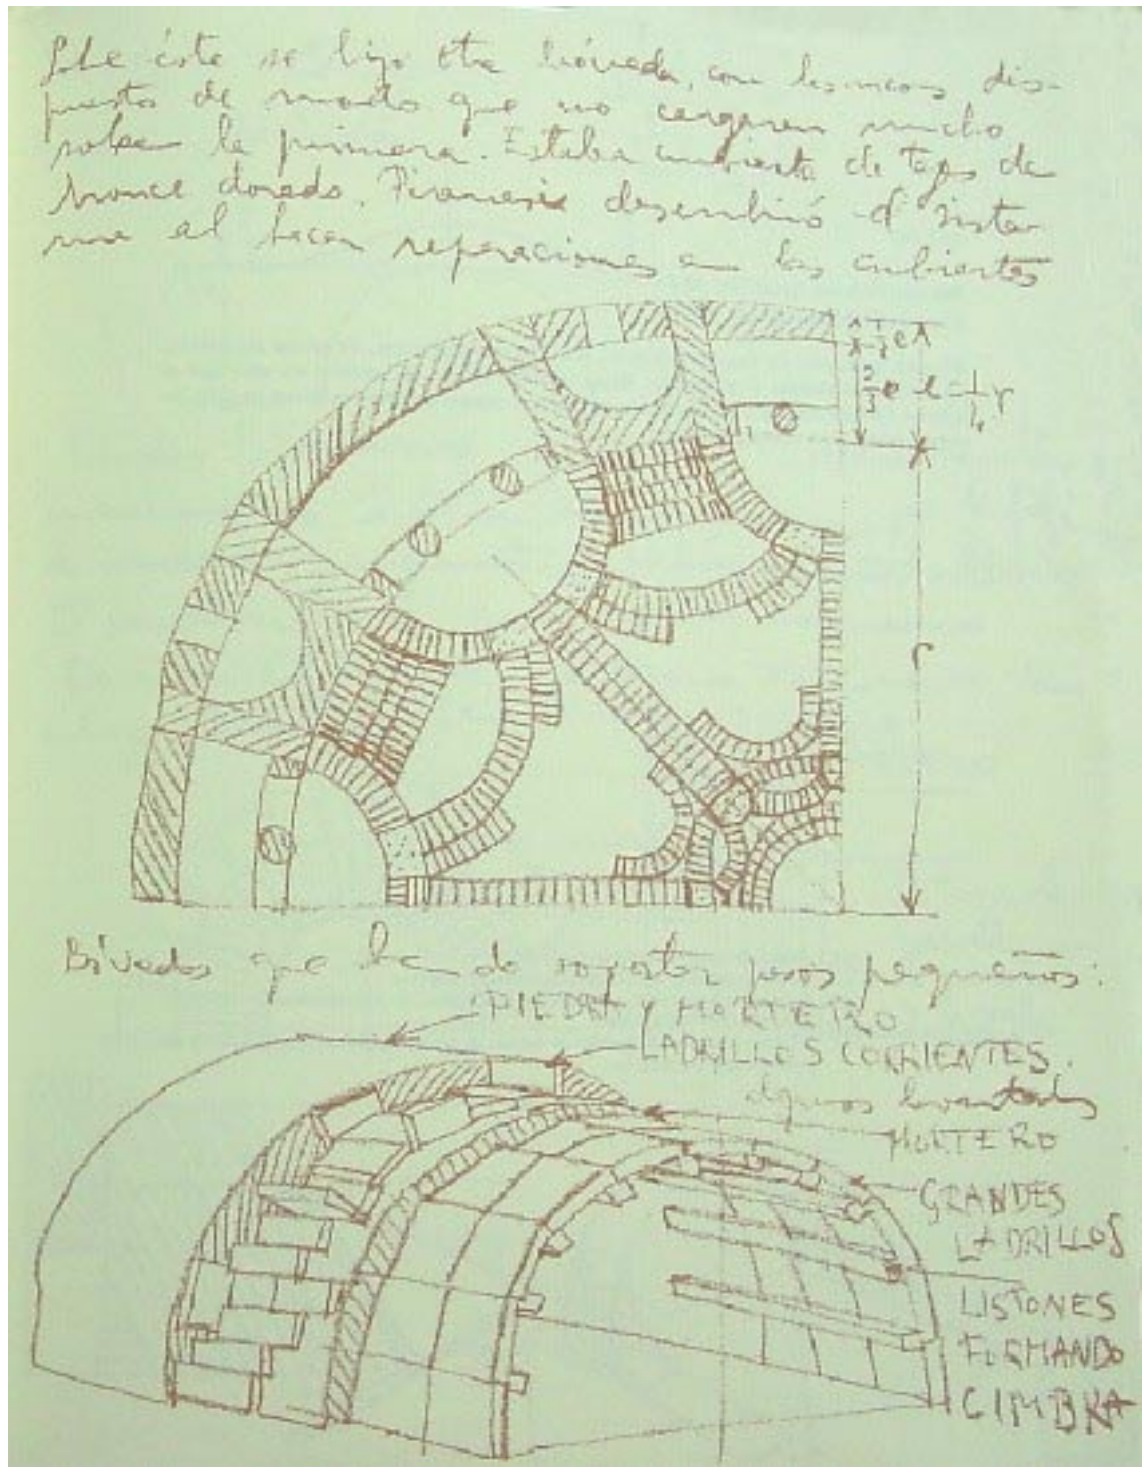 Sobre ésta se hizo otra bóveda, con los arcos dis-
puestos de modo que no cargaran mucho
sobre la primera. Estaba cubierta de tejas de
bronce dorado. Piranesi descubrió el siste-
ma al hacer reparaciones en las cubiertas
1/3 e
2/3 e e = 1/4 r
r
Bóvedas que han de soportar pesos pequeños:
PIEDRA Y MORTERO
LADRILLOS CORRIENTES.
algunos levantados
MORTERO
GRANDES
LADRILLOS
LISTONES
FORMANDO
CIMBRA